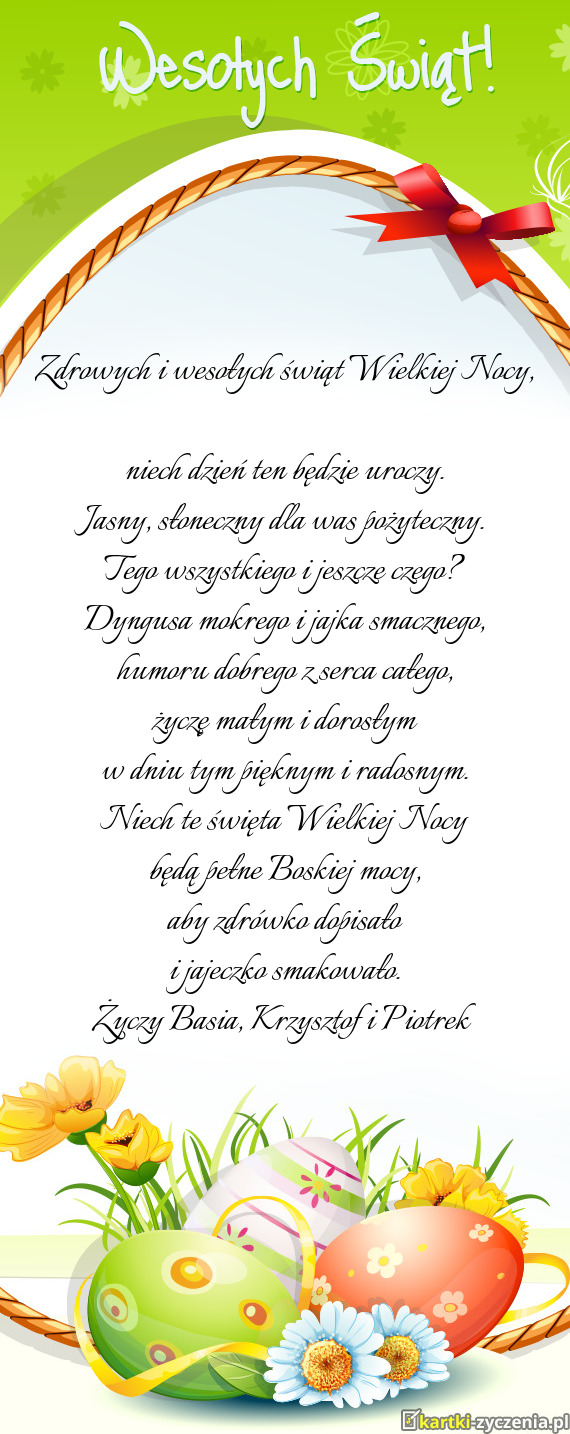 Wesołych Świąt!
Zdrowych i wesołych świąt Wielkiej Nocy,
niech dzień ten będzie uroczy.
Jasny, słoneczny dla was pożyteczny.
Tego wszystkiego i jeszczę czego?
Dyngusa mokrego i jajka smacznego,
humoru dobrego z serca całego,
życzę małym i dorosłym
w dniu tym pięknym i radosnym.
Niech te święta Wielkiej Nocy
będą pełne Boskiej mocy,
aby zdrówko dopisało
i jajeczko smakowało.
Życzy Basia, Krzysztof i Piotrek
kartki-zyczenia.pl